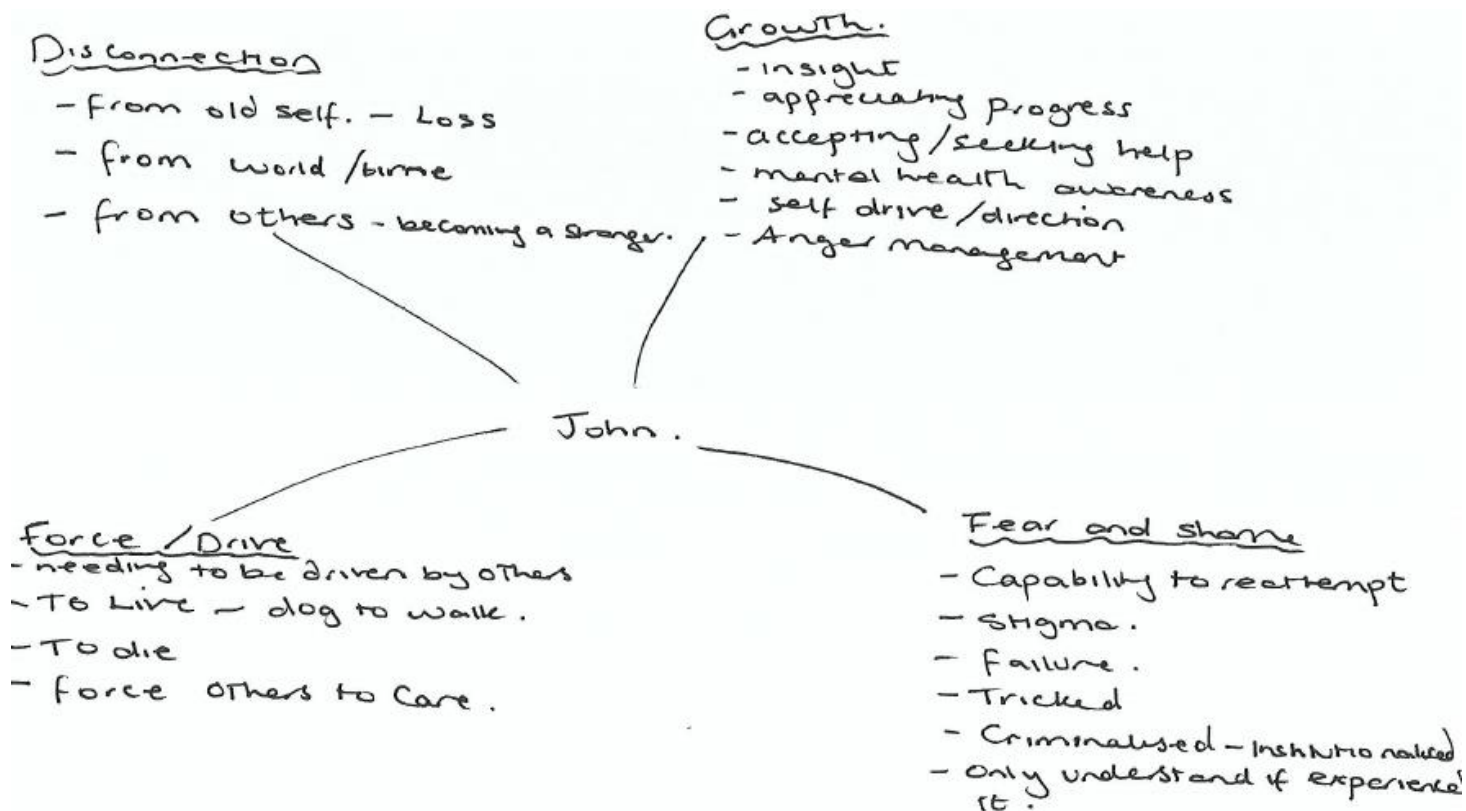 Disconnection
- from old self. - Loss
- from world / time
- from others - becoming a stranger.
Growth.
- insight
- appreciating progress
- accepting/seeking help
- mental health awareness
- self drive/direction
- Anger management
John.
Force / Drive
- needing to be driven by others
- To Live - dog to walk.
- To die
- force others to care.
Fear and shame
- Capability to reattempt
- Stigma.
- Failure.
- Tricked
- Criminalised - Institutionalised
- only understand if experience
it.